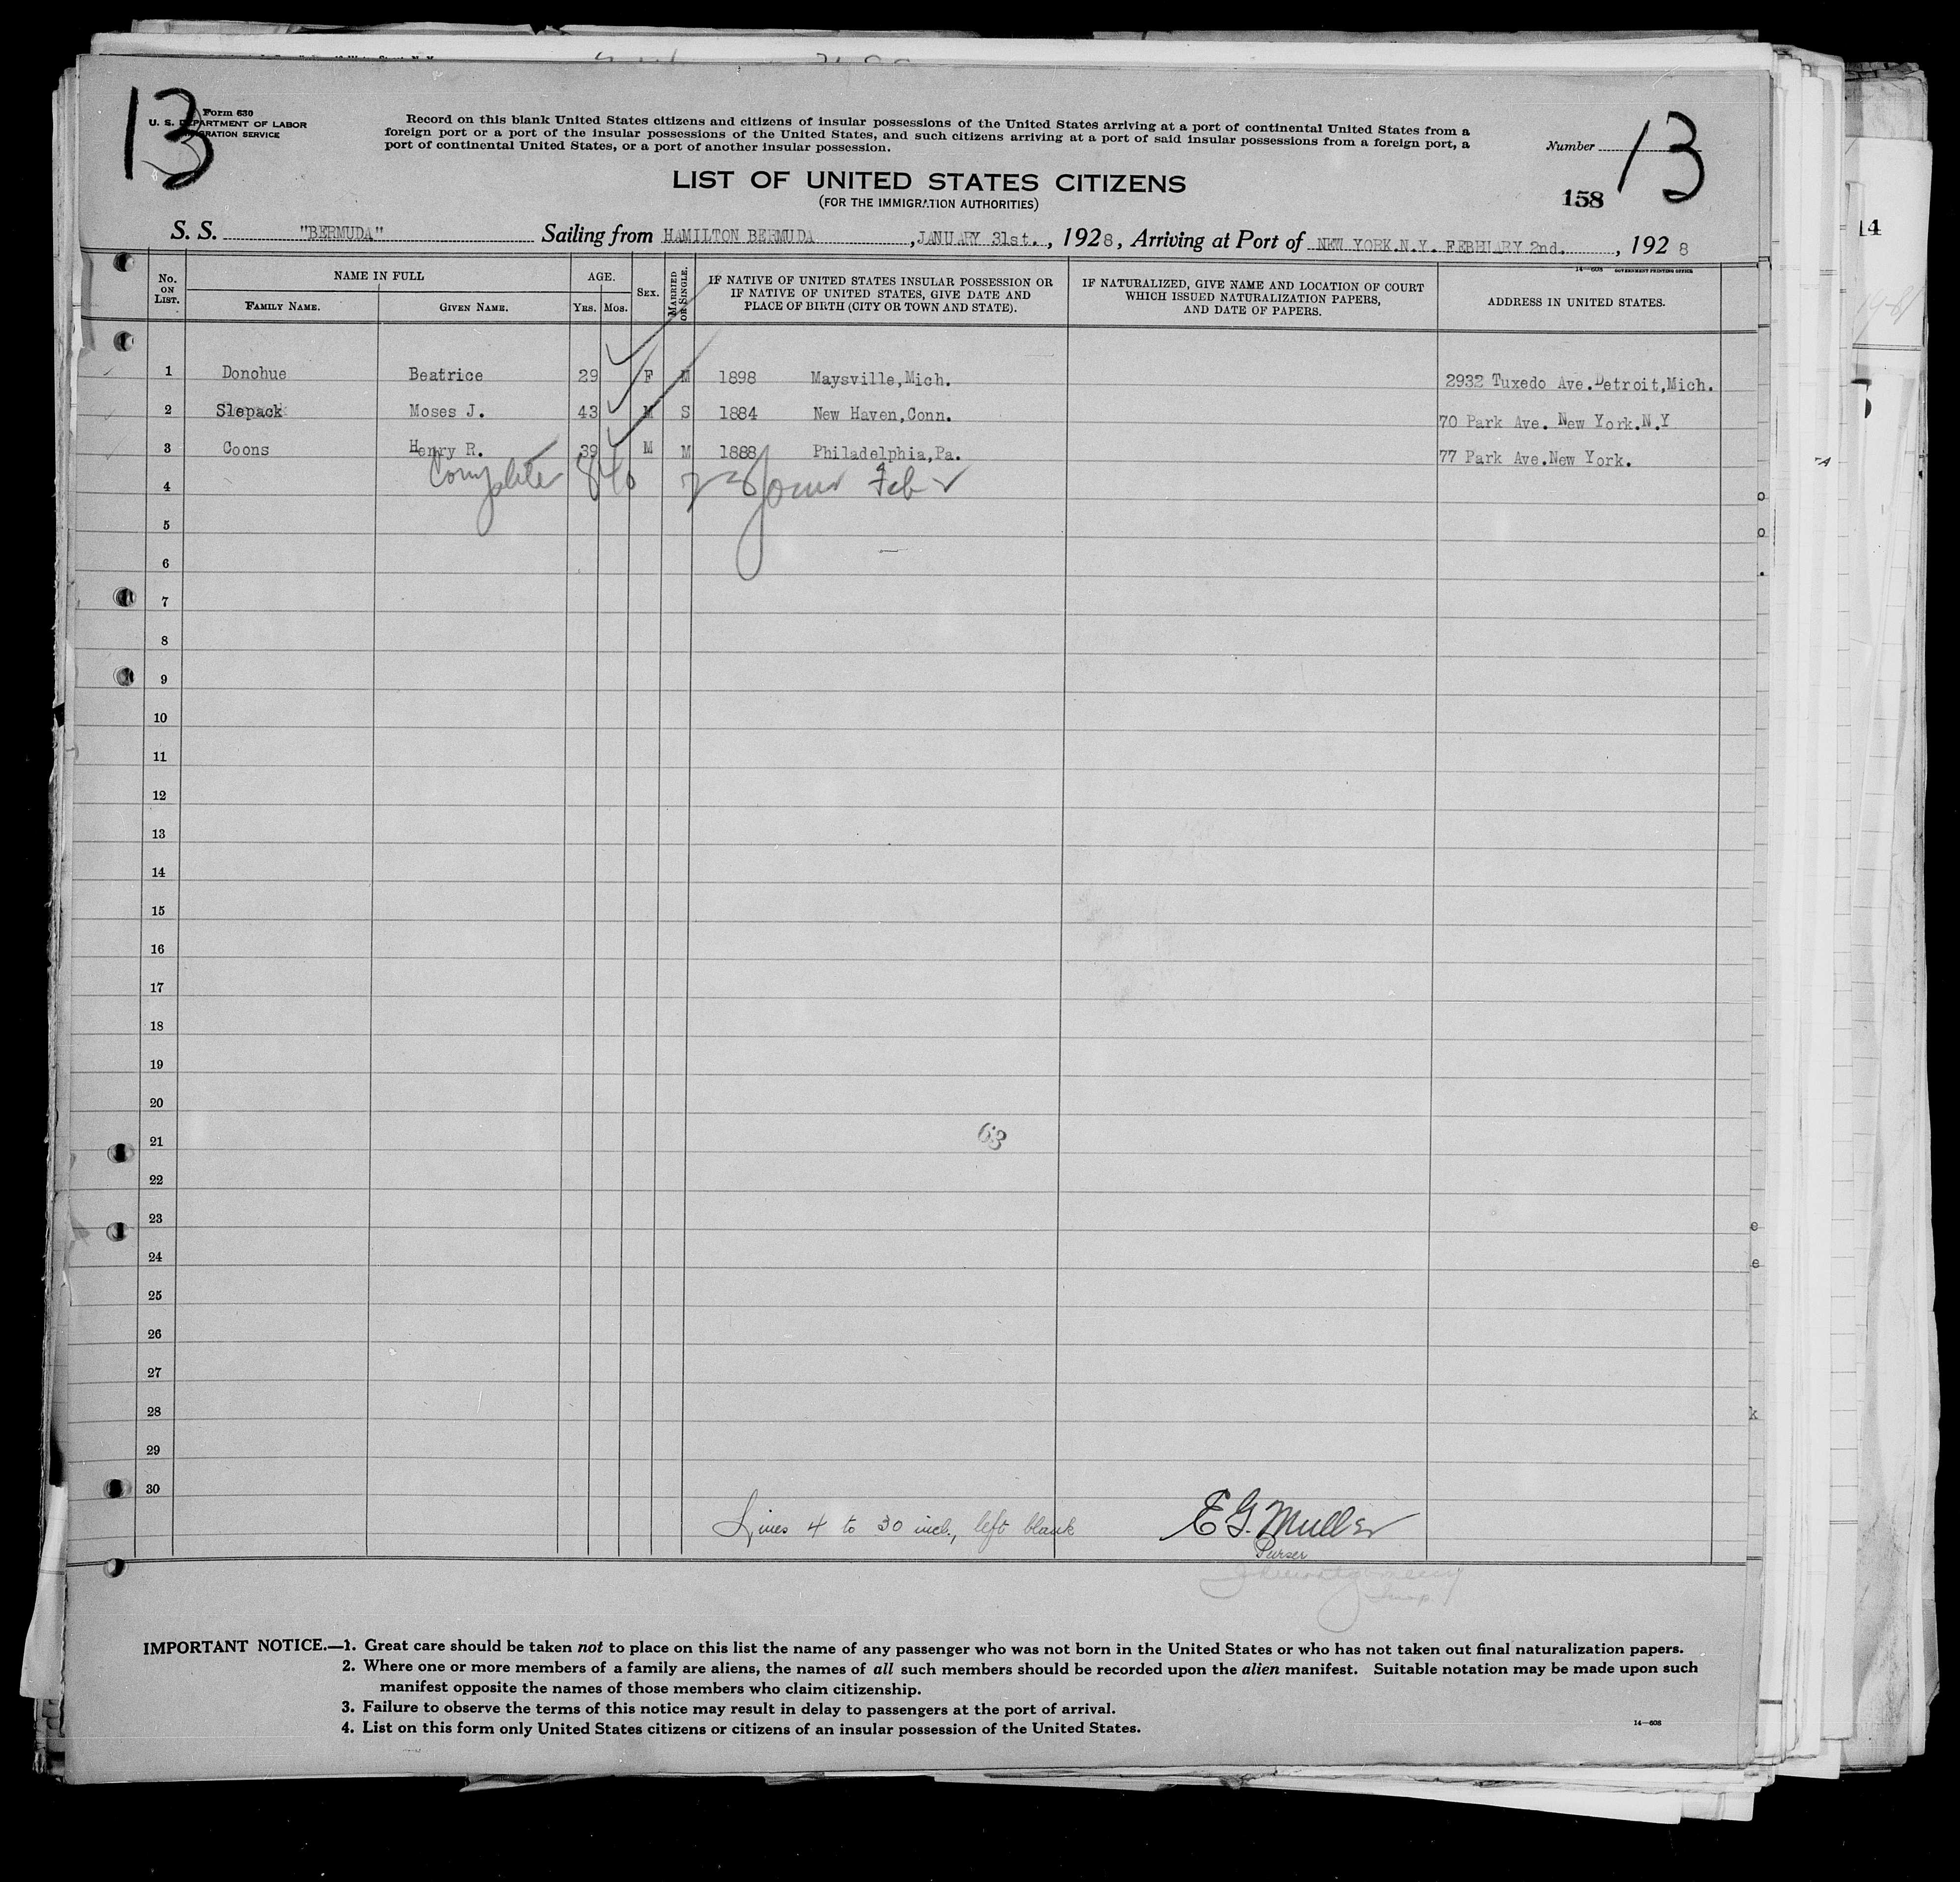 13
Form 630
U. S. DEPARTMENT OF LABOR
IMMIGRATION SERVICE
Record on this blank United States citizens and citizens of insular possessions of the United States arriving at a port of continental United States from a
foreign port or a port of the insular possessions of the United States, and such citizens arriving at a port of said insular possessions from a foreign port, a
port of continental United States, or a port of another insular possession.
Number 13
LIST OF UNITED STATES CITIZENS
(FOR THE IMMIGRATION AUTHORITIES)
158
S. S. "BERMUDA" Sailing from HAMILTON BERMUDA, JANUARY 31st., 1928, Arriving at Port of NEW YORK.N.Y. FEBRUARY 2nd., 1928
14—608 GOVERNMENT PRINTING OFFICE
No. ON LIST. NAME IN FULL FAMILY NAME. GIVEN NAME. AGE. YRS. MOS. SEX. MARRIED OR SINGLE. IF NATIVE OF UNITED STATES INSULAR POSSESSION OR IF NATIVE OF UNITED STATES, GIVE DATE AND PLACE OF BIRTH (CITY OR TOWN AND STATE). IF NATURALIZED, GIVE NAME AND LOCATION OF COURT WHICH ISSUED NATURALIZATION PAPERS, AND DATE OF PAPERS. ADDRESS IN UNITED STATES.
1 Donohue Beatrice 29 F M 1898 Maysville,Mich. 2932 Tuxedo Ave.Detroit,Mich.
2 Slepack Moses J. 43 M S 1884 New Haven,Conn. 70 Park Ave. New York.N.Y
3 Coons Henry R. 39 M M 1888 Philadelphia,Pa. 77 Park Ave.New York.
Complete Feb
4
5
6
7
8
9
10
11
12
13
14
15
16
17
18
19
20
21
63
22
23
24
25
26
27
28
29
30
Lines 4 to 30 incl., left blank
E G. Muller
Purser
IMPORTANT NOTICE.—1. Great care should be taken not to place on this list the name of any passenger who was not born in the United States or who has not taken out final naturalization papers.
2. Where one or more members of a family are aliens, the names of all such members should be recorded upon the alien manifest. Suitable notation may be made upon such
manifest opposite the names of those members who claim citizenship.
3. Failure to observe the terms of this notice may result in delay to passengers at the port of arrival.
4. List on this form only United States citizens or citizens of an insular possession of the United States.
14—608